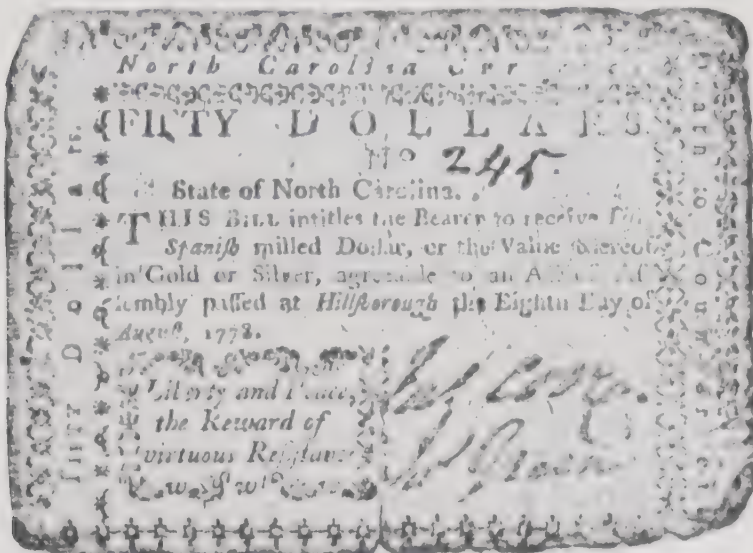 North Carolina Cur
FIFTY DOLLARS
No 245.
State of North Carolina.
THIS BILL intitles the Bearer to receive
Spaniſh milled Dollars, or the Value thereof
in Gold or Silver, agreeable to an Act of Aſ
ſembly paſſed at Hillſborough the Eighth Day of
Auguſt, 1778.
Liberty and Peace,
the Reward of
virtuous Reſiſtance
Fifty Dollars.
Death to Counterfeit